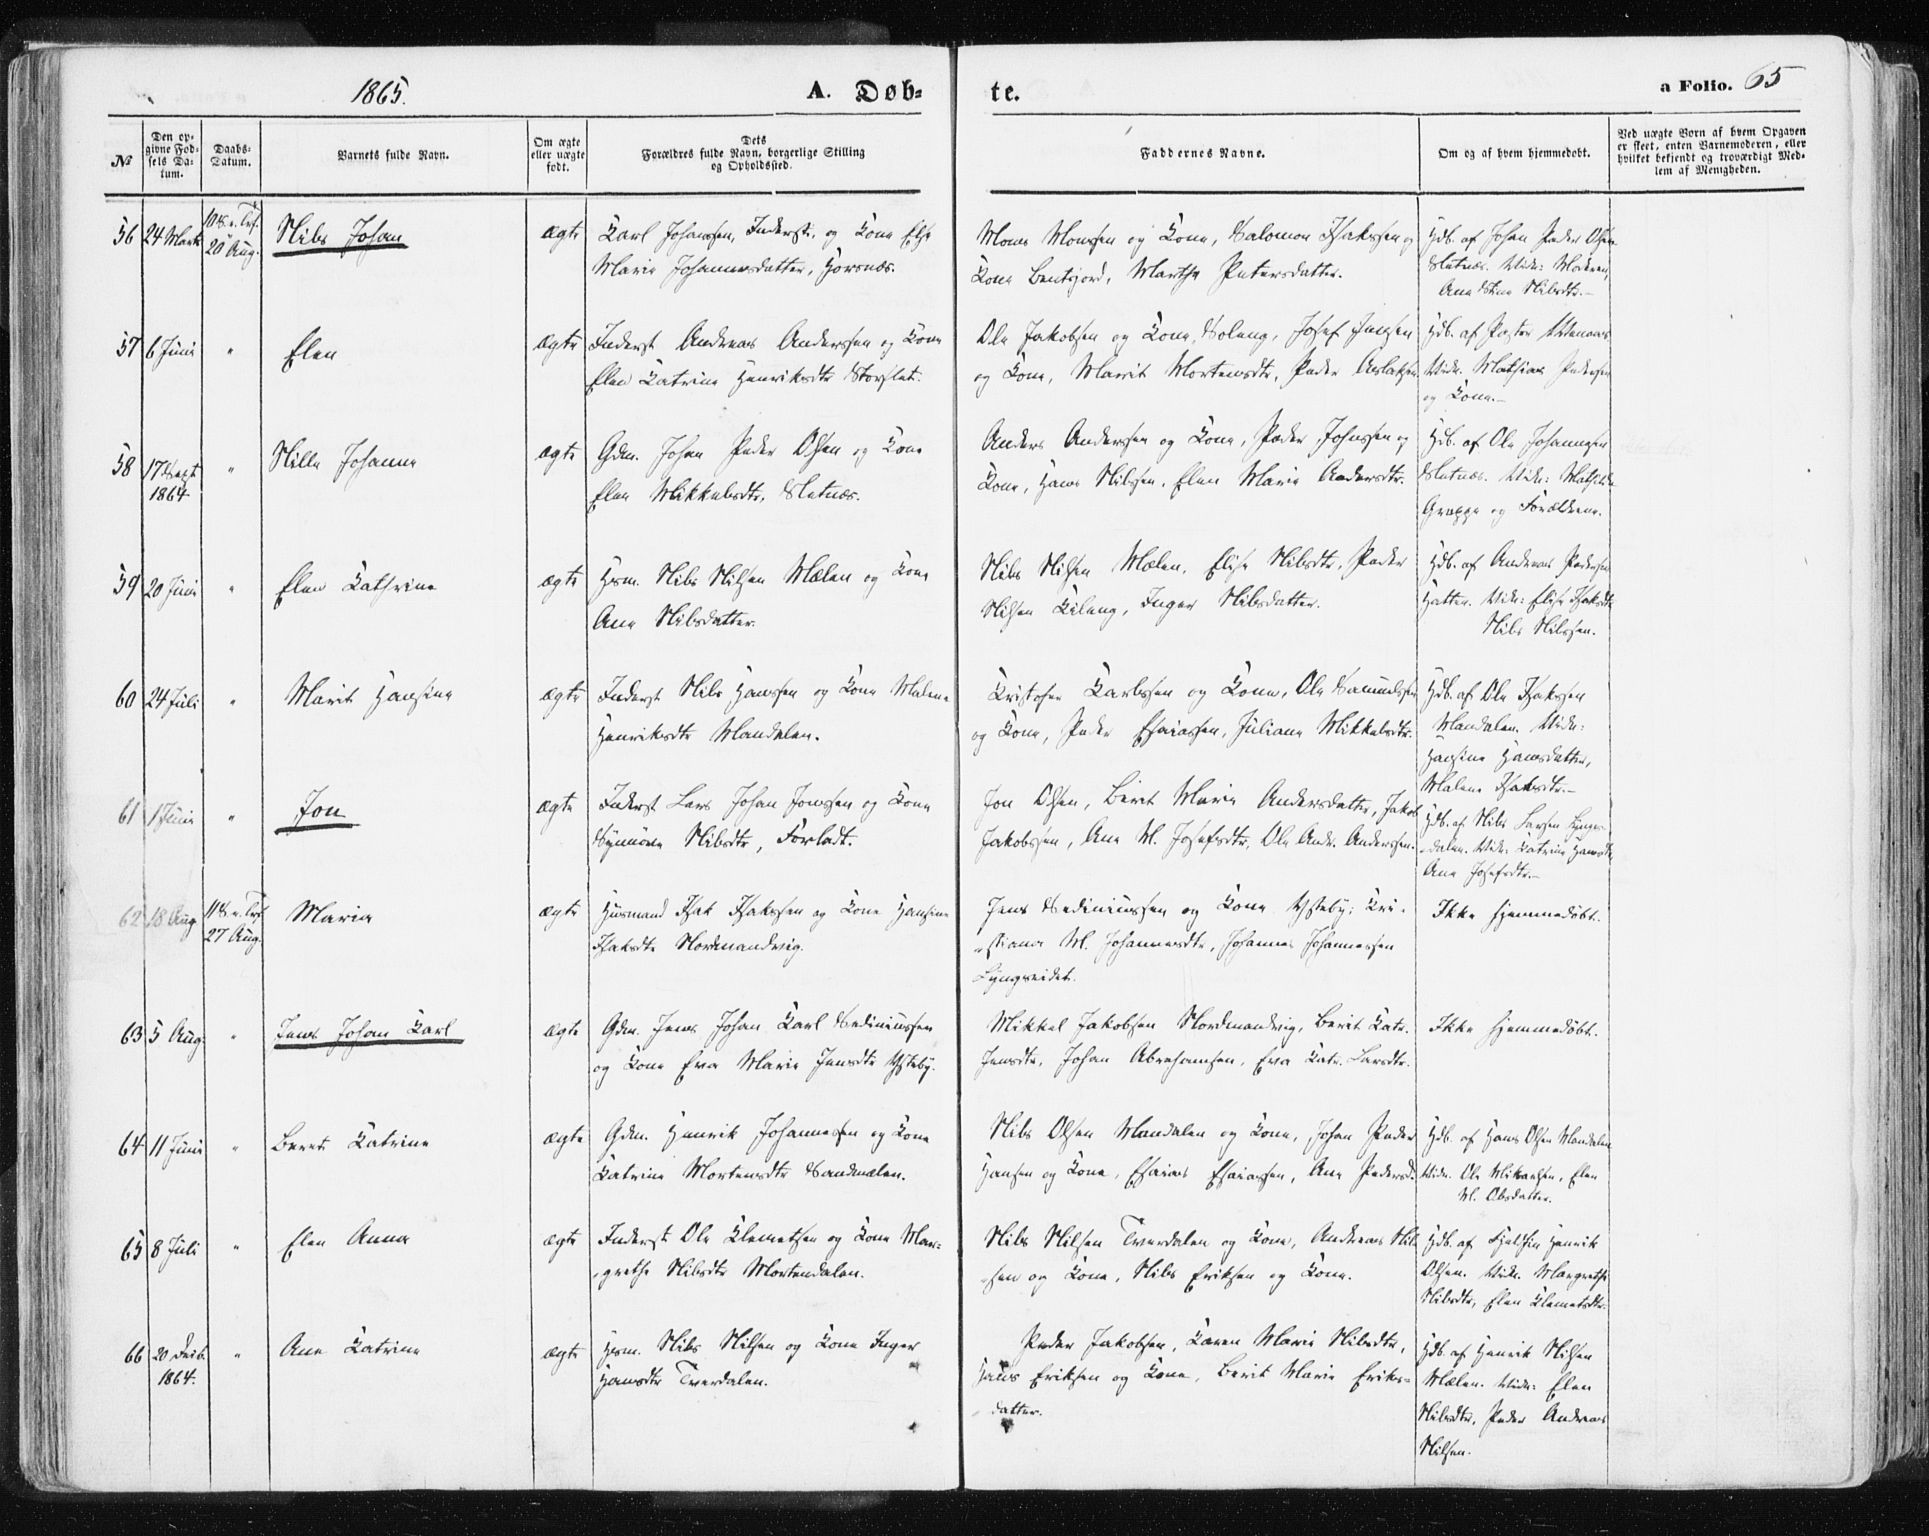 1865.
A. Døb-
te.
a Folio. 65
№
Den op-
givne Fød-
sels Da-
tum.
Daabs-
Datum.
Barnets fulde Navn.
Om ægte
eller uægte
født.
Dets
Forældres fulde Navn, borgerlige Stilling
og Opholdssted.
Faddernes Navne.
Om og af hvem hjemmedøbt.
Ved uægte Børn af hvem Opgaven
er skeet, enten Barnemoderen, eller
hvilket bekjendt og troværdigt Med-
lem af Menigheden.
56 24 Marts 10 S. e. Tref.
20 Aug.
Nils Johan
ægte
Karl Johanssen, Inderst, og Kone Else
Marie Johannesdatter, Horsnæs.
Mons Monssen og Kone, Salomon Isakssen og
Kone Bentsjord, Marthe Petersdatter.
Hdb. af Johan Peder Olsen
Sletnæs. Vidn: Moderen,
Ane Stine Nilsdtr.-
57 6 Juni "
Elen
ægte
Inderst Andreas Anderssen og Kone
Elen Katrine Henriksdtr Storslet.
Ole Jakobsen og Kone, Soleng, Josef Jensen
og Kone, Marit Mortensdtr, Peder Aslaksen.
Hdb. af
Vidn. Mathias Pedersen
og Kone.-
58 17 Sept
1864 "
Nille Johanne
ægte
Gdm. Johan Peder Olsen og Kone
Elen Mikkelsdtr, Sletnæs.
Anders Anderssen og Kone, Peder Johnssen og
Kone, Hans Nilssen, Elen Marie Andersdtr.
Hdb. af Ole Johannesen
Sletnæs. Vidn: Mathilde
Grape og Forældrene.
59 20 Juni "
Elen Kathrine
ægte
Hsm. Nils Nilsen Mælen og Kone
Ane Nilsdatter.
Nils Nilsen Mælen, Elise Nilsdtr, Peder
Nilsen Kileng, Inger Nilsdatter.
Hdb. af Andreas Pedersen
Hatten. Vidn: Elise Isaksdtr
Nils Nilssen.
60 24 Juli "
Marit Hansine
ægte
Inderst Nils Hanssen og Kone Malene
Henriksdtr Mandalen.
Kristofer Karlssen og Kone, Ole Samuelssen
og Kone, Peder Esaiassen, Juliane Mikkelsdtr.
Hdb. af Ole Isakssen
Mandalen. Vidn:
Hansine Hansdatter,
Malene Isaksdtr.-
61 1 Juni "
Jon
ægte
Inderst Lars Johan Jonssen og Kone
Synnöve Nilsdtr, Forladt.
Jon Olsen, Berit Marie Andersdatter, Jakob
Jakobssen, Ane M. Josefsdtr, Ole Andr. Anderssen.
Hdb. af Nils Larsen Lyngs-
dalen. Vidn: Katrine Hansdtr,
Ane Josefsdtr.-
62 18 Aug 11 S. e. Tref.
27 Aug.
Maria
ægte
Husmand Isak Isakssen og Kone Hansine
Isaksdtr Nordmandvig.
Jens Sediniussen og Kone Ysteby; Kri-
stiane M. Johannesdtr, Johannes Johannessen
Lyngseidet.
Ikke hjemmedøbt.
63 5 Aug "
Jens Johan Karl
ægte
Gdm. Jens Johan Karl Sediniussen
og Kone Eva Marie Jensdtr Ysteby.
Mikkel Jakobsen Nordmandvig, Berit Katr.
Jensdtr, Johan Abrahamsen, Eva Katr. Larsdtr.
Ikke hjemmedøbt.
64 11 Juni "
Beret Katrine
ægte
Gdm. Henrik Johannessen og Kone
Katrine Mortensdtr Sandmælen.
Nils Olsen Mandalen og Kone, Johan Peder
Hansen og Kone, Esaias Esaiassen, Ane Pedersd.
Hdb. af Hans Olsen Mandalen
Vidn. Ole Mikaelsen, Elen
M. Olsdatter.
65 8 Juli "
Elen Anna
ægte
Inderst Ole Klemetsen og Kone Mar-
grethe Nilsdtr Mortendalen.
Nils Nilsen Tverdalen og Kone, Andreas Nil-
sen og Kone, Nils Eriksen og Kone.
Hdb. af Henrik
Olsen. Vidn. Margrethe
Nilsdtr, Elen Klemetsdtr.
66 20 Decb.
1864. "
Ane Katrine
ægte
Hsm. Nils Nilsen og Kone Inger
Hansdtr Tverdalen.
Peder Jakobsen, Karen Marie Nilsdtr,
Hans Eriksen og Kone, Berit Marie Eriks-
datter.
Hdb. af Henrik Nilsen
Mælen. Vidn: Elen
Nilsdtr, Peder Andreas
Nilsen.